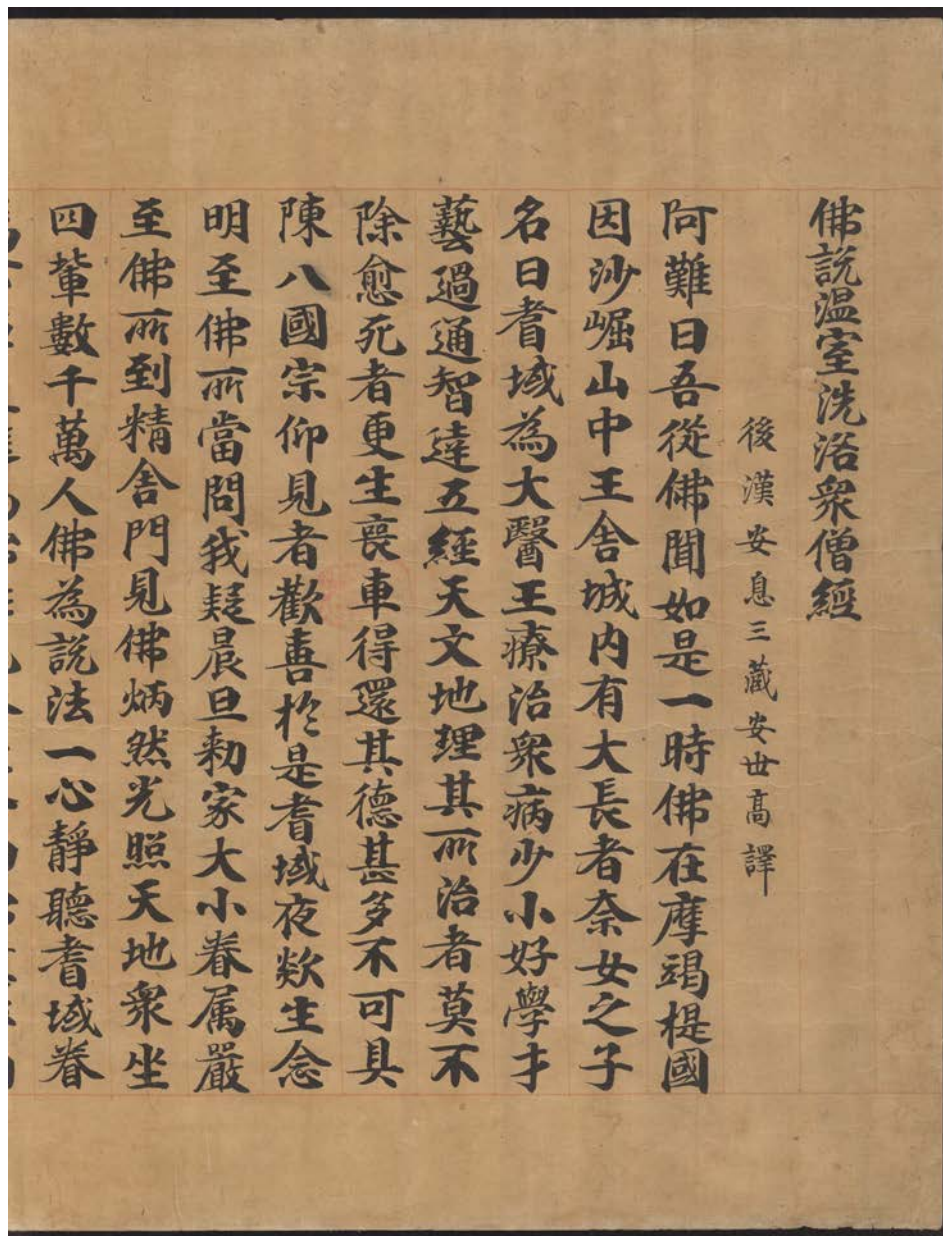 佛說温室洗浴衆僧經
後漢安息三藏安世高譯
阿難曰吾從佛聞如是一時佛在摩竭提國
因沙崛山中王舍城内有大長者奈女之子
名曰耆域為大醫王療治衆病少小好學才
藝過通智達五經天文地理其所治者莫不
除愈死者更生喪車得還其德甚多不可具
陳八國宗仰見者歡喜於是耆域夜欻生念
明至佛所當問我疑晨旦勑家大小眷属嚴
至佛所到精舍門見佛炳然光照天地衆坐
四輩數千萬人佛為說法一心靜聽耆域眷